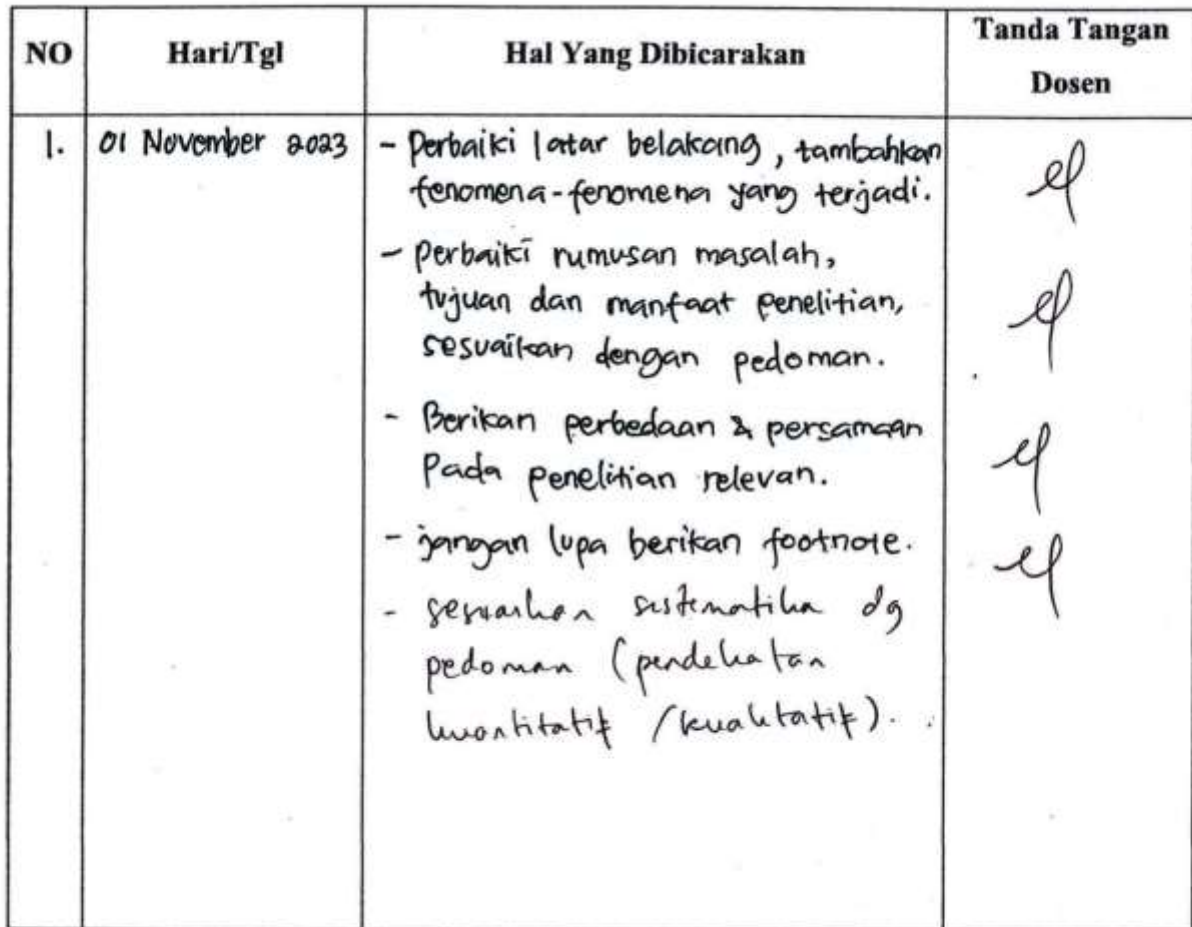 NO
Hari/Tgl
Hal Yang Dibicarakan
Tanda Tangan
Dosen
1.
01 November 2023
- Perbaiki latar belakang, tambahkan
fenomena-fenomena yang terjadi.
- perbaiki rumusan masalah,
tujuan dan manfaat penelitian,
sesuaikan dengan pedoman.
- Berikan perbedaan & persamaan
Pada penelitian relevan.
- jangan lupa berikan footnote.
- sesuaikan sistematika dg
pedoman (pendekatan
kuantitatif /kualitatif).